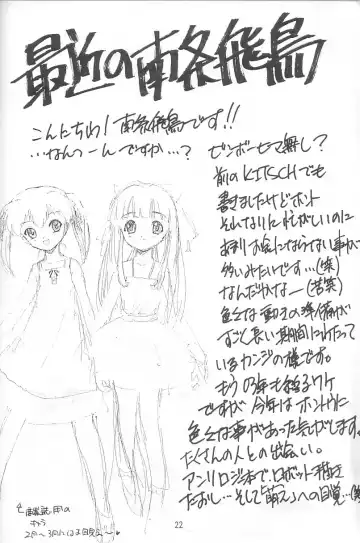 最近の南条飛鳥
こんにちわ!南条飛鳥です!!
…なんつーんですか…?
ビンボーヒマ無し?
前のKITSCHでも
書きましたけどホント
それなりに忙がしいのに
あまりお金にならない事が
多いみたいです…(笑)
なんだかなー(苦笑)
色々な動きの準備が
すごく長い期間にわたって
いるカンジの様です。
もう03年も終るワケ
ですが今年はホントに
色々な事があった気がします。
たくさんの人との出会い。
アンソロジ本でロボット
たおし…そして「萌え」への目覚…(笑
22